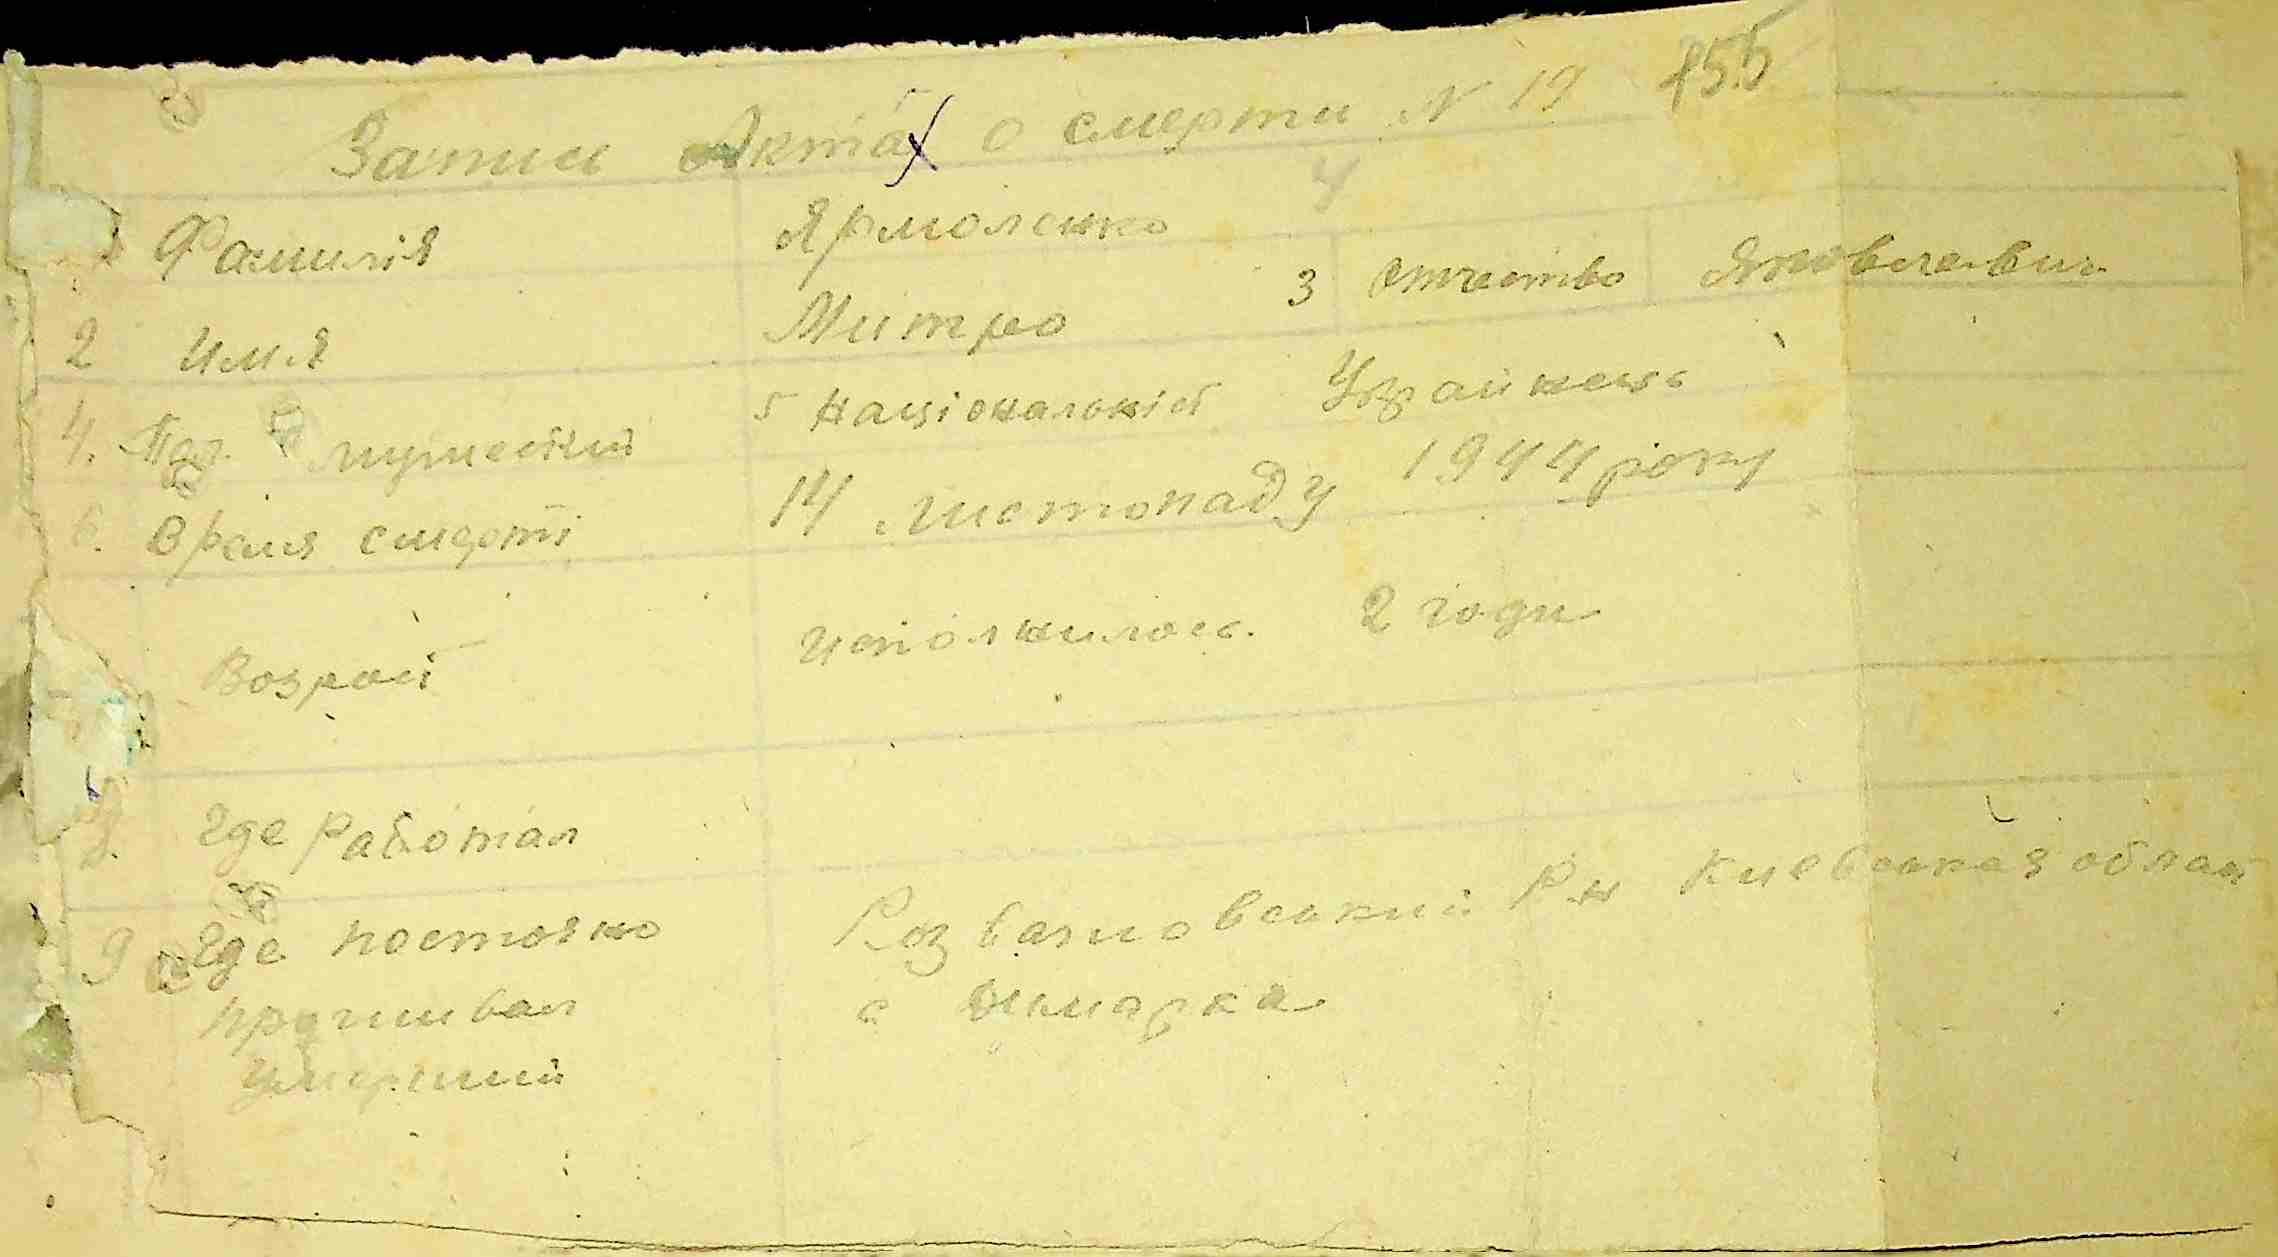 Запись Акта о смерти N 19 155
Фамилія Ярмоленко
2 Имя Митро 3 отчество Яковлевич
4. Пол. мужеский 5 Національніст Украйнець
6. Время смерті 14 листопаду 1944 року
Возраст исполнилось 2 годи
8. Где работал
9 Где постояно Розважовський Р-н Киевськая област
проживал с Жмиарка
умерший